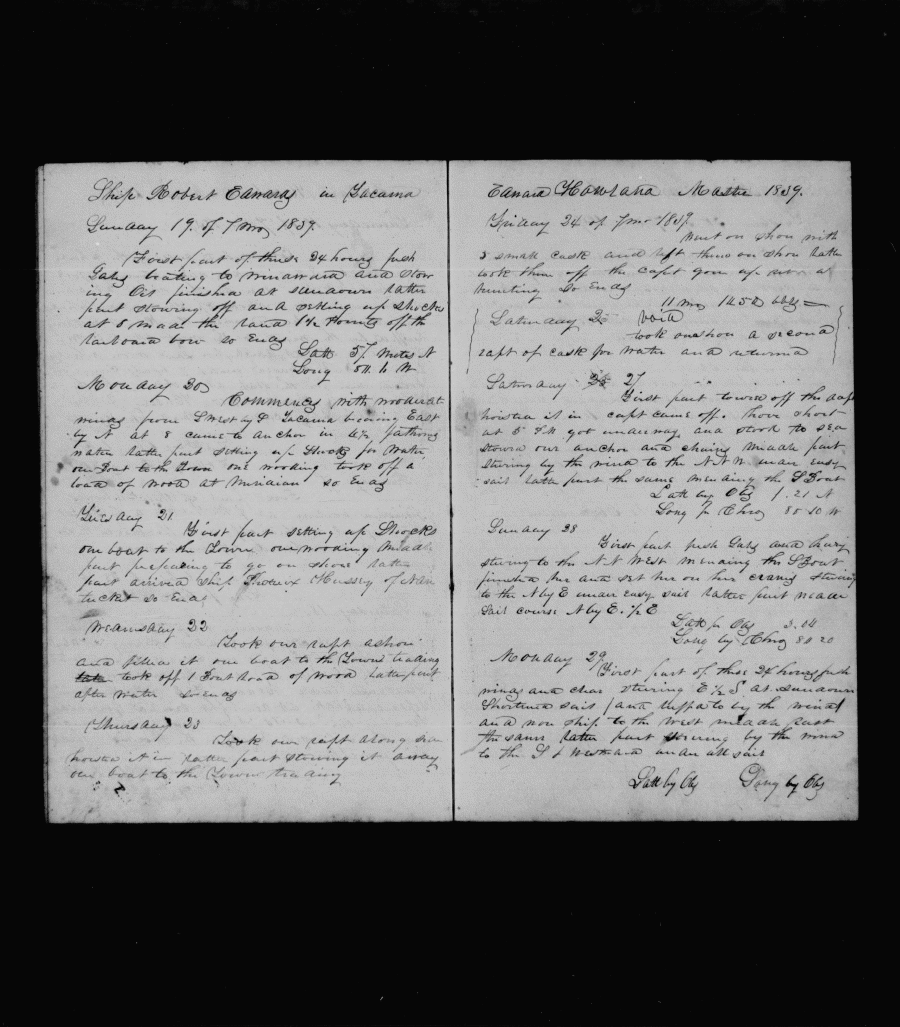 Ship Robert Edwards in Tacama
Sunday 19. of 7 mo, 1839.
First part of these 24 hours fresh
Gales beating to windward and stow
ing Oil finished at sundown latter
part stowing off and setting up Shocks
at 8 made the land 14½ points off the
larboard bow so Ends
Latt 57 miles N
Long 80. 6 W
Monday 20
Commences with moderate
winds from S West by S Tacama bearing East
by N at 8 came to anchor in 4½ fathoms
water latter part setting up Shocks for Water
our Boat to the Town one wooding took off a
load of wood at Meridian so Ends
Tuesday 21
First part setting up Shocks
one boat to the Town one wooding Middle
part preparing to go on shore latter
part arrived ship Hussey of Nan
tucket so Ends
Wednesday 22
Took our raft ashore
and filled it one boat to the Town trading
took off 1 Boat load of wood latter part
after water so ends
Thursday 23
Took our raft along side
hoisted it in latter part stowing it away
one boat to the Town trading
Edward Howland Master 1839.
Friday 24 of 7 mo 1839
went on shore with
5 small cask and left them on shore latter
took them off the capt gone up river a
hunting So Ends
11 mo 1450 bbls
Saturday 25 void
took ashore a second
raft of cask for water and returned
Saturday 27
First part towed off the raft
hoisted it in capt came off. hove short
at 5 P.M. got underway and stood to sea
stowed our anchor and chains middle part
steering by the wind to the N.N.W. under easy
sail latter part the same mending the S Boat
Latt by Obs 1.21 N
Long pr Chro 80 50 W
Sunday 28
First part fresh Gales and heavy
steering to the N.N West mending the S Boat
finished her and set her on her cranes steering
to the N by E under easy sail latter part made
Sail course N by E. ½ E
Latt pr Obs 3.04
Long by Chro 80 20
Monday 29
First part of these 24 hours fresh
winds and clear steering E ½ S at sundown
Shortened sail and luffed to by the wind
and wore ship to the West middle part
the same latter part steering by the wind
to the S & Westward under all sail
Latt by Obs Long by Obs